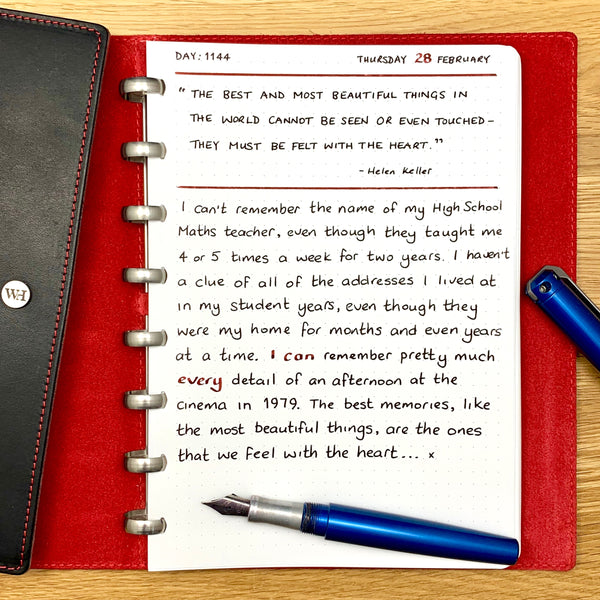 DAY: 1144 THURSDAY 28 FEBRUARY
" THE BEST AND MOST BEAUTIFUL THINGS IN
THE WORLD CANNOT BE SEEN OR EVEN TOUCHED –
THEY MUST BE FELT WITH THE HEART."
- Helen Keller
I can't remember the name of my High School
Maths teacher, even though they taught me
4 or 5 times a week for two years. I haven't
a clue of all of the addresses I lived at
in my student years, even though they
were my home for months and even years
at a time. I can remember pretty much
every detail of an afternoon at the
cinema in 1979. The best memories, like
the most beautiful things, are the ones
that we feel with the heart... x
WH